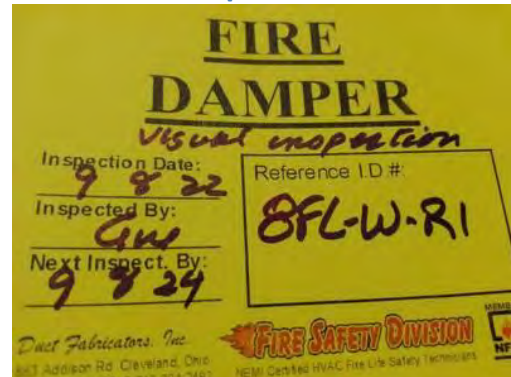 FIRE
DAMPER
Visual inspection
Inspection Date:
9 8 22
Inspected By:
Next Inspect. By:
9 8 24
Reference I.D #:
8FL-W-R1
Duct Fabricators, Inc
Addison Rd. Cleveland, Ohio
FIRE SAFETY DIVISION
NEMI Certified HVAC Fire Life Safety Technicians